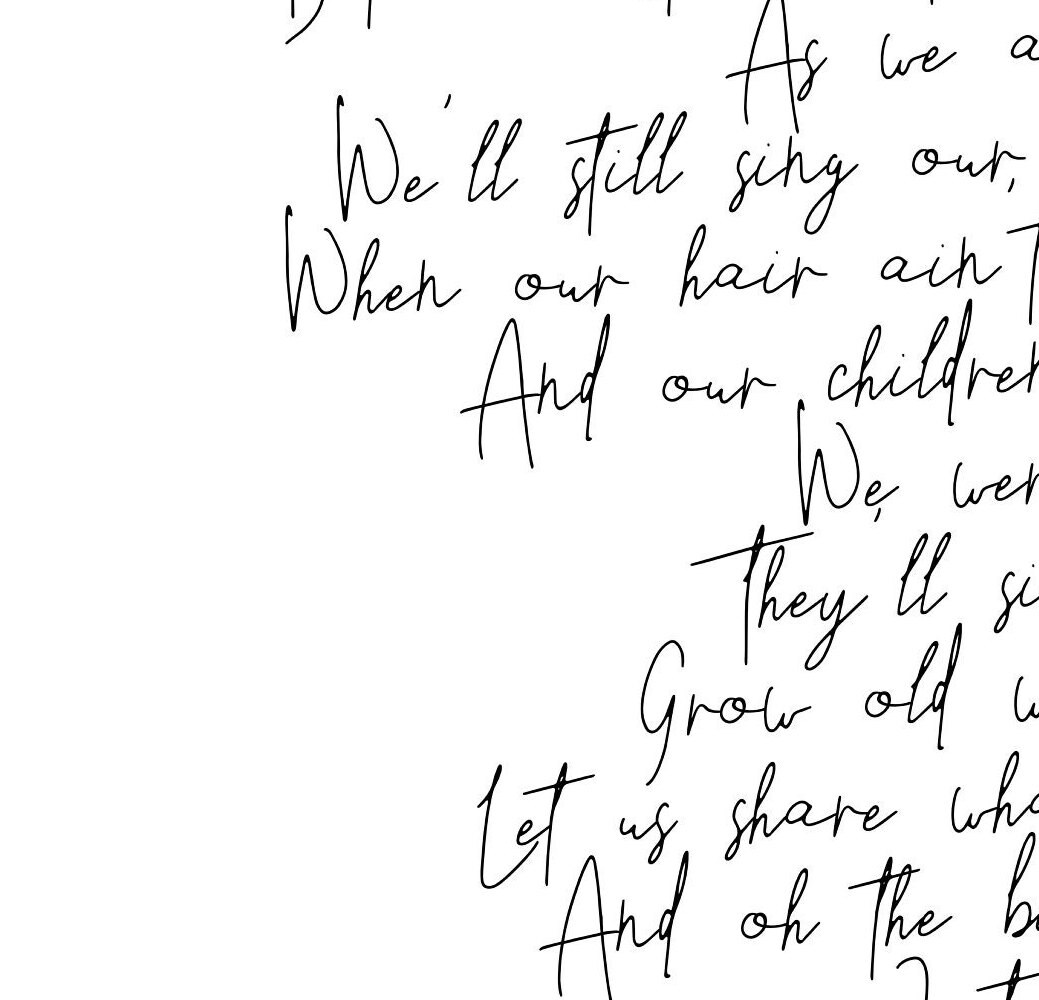 As we a
We'll still sing our,
When our hair ain'T
And our children
We, wer
They'll si
Grow old w
Let us share wha
And oh the b